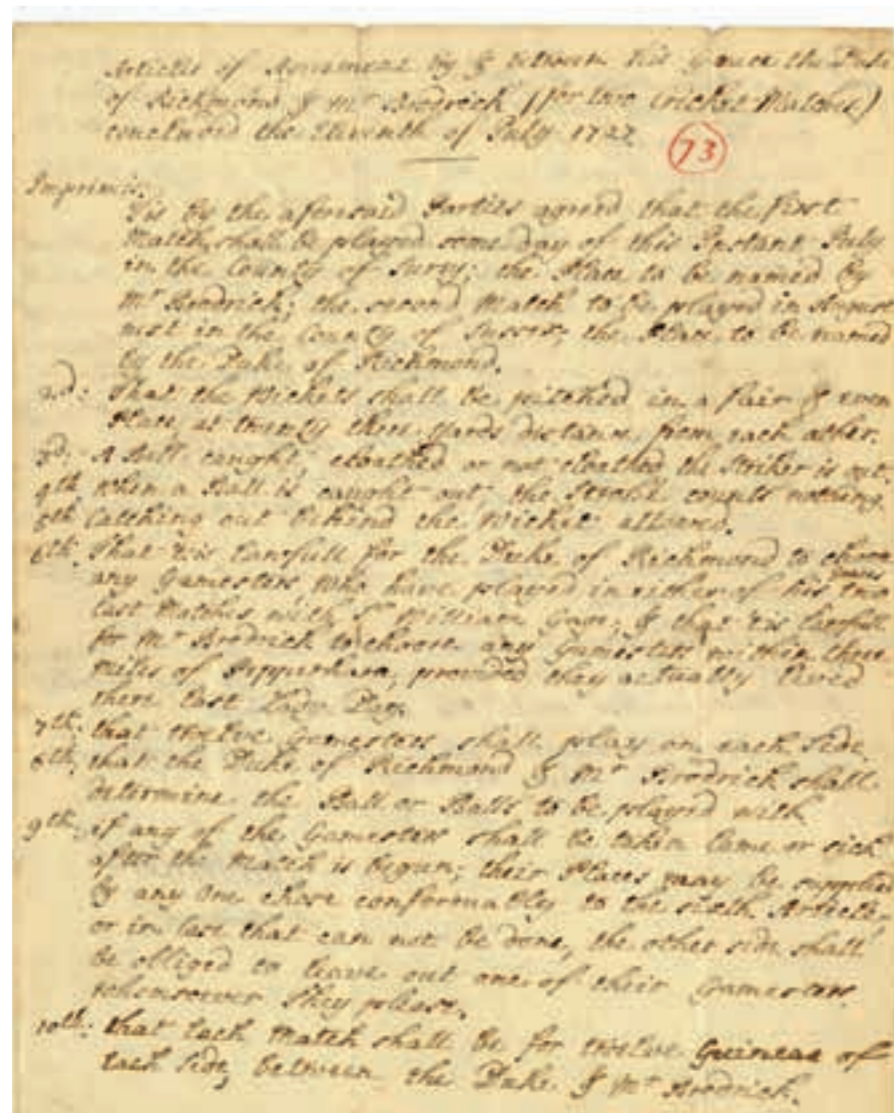 Articles of Agreement by & between His Grace the Duke
of Richmond & Mr Brodrick (for two Cricket Matches)
concluded the Eleventh of July 1727
73
Imprimis.
'Tis by the aforesaid Parties agreed that the first
Match shall be played some day of this Instant July
in the County of Surry; the Place to be named by
Mr Brodrick; the second Match to be played in August
next in the County of Sussex, the Place to be named
by the Duke of Richmond.
2d: That the Wickets shall be pitched in a fair & even
Place, at twenty three yards distance from each other.
3d: A Ball caught, cloathed or not cloathed the Striker is out
4th When a Ball is caught out, the Stroke counts nothing
5th Catching out behind the Wicket allowed.
6th. That 'tis lawfull for the Duke of Richmond to choose
any Gamesters, who have played in either of his two
last Matches with Sr William Gage; & that 'tis lawfull
for Mr Brodrick to choose any Gamesters within three
miles of Pepperhara, provided they actually lived
there last Lady Day.
7th: that twelve Gamesters shall play on each side
8th, that the Duke of Richmond & Mr Brodrick shall
determine the Ball or Balls to be played with
9th: if any of the Gamesters shall be taken lame or sick
after the Match is begun, their Places may be supplied
by any One chose conformably to the sixth Article,
or in Case that can not be done, the other side shall
be obliged to leave out one of their Gamesters
whomsoever they please.
10th: that each Match shall be for twelve Guineas of
each Side, between the Duke & Mr Brodrick.